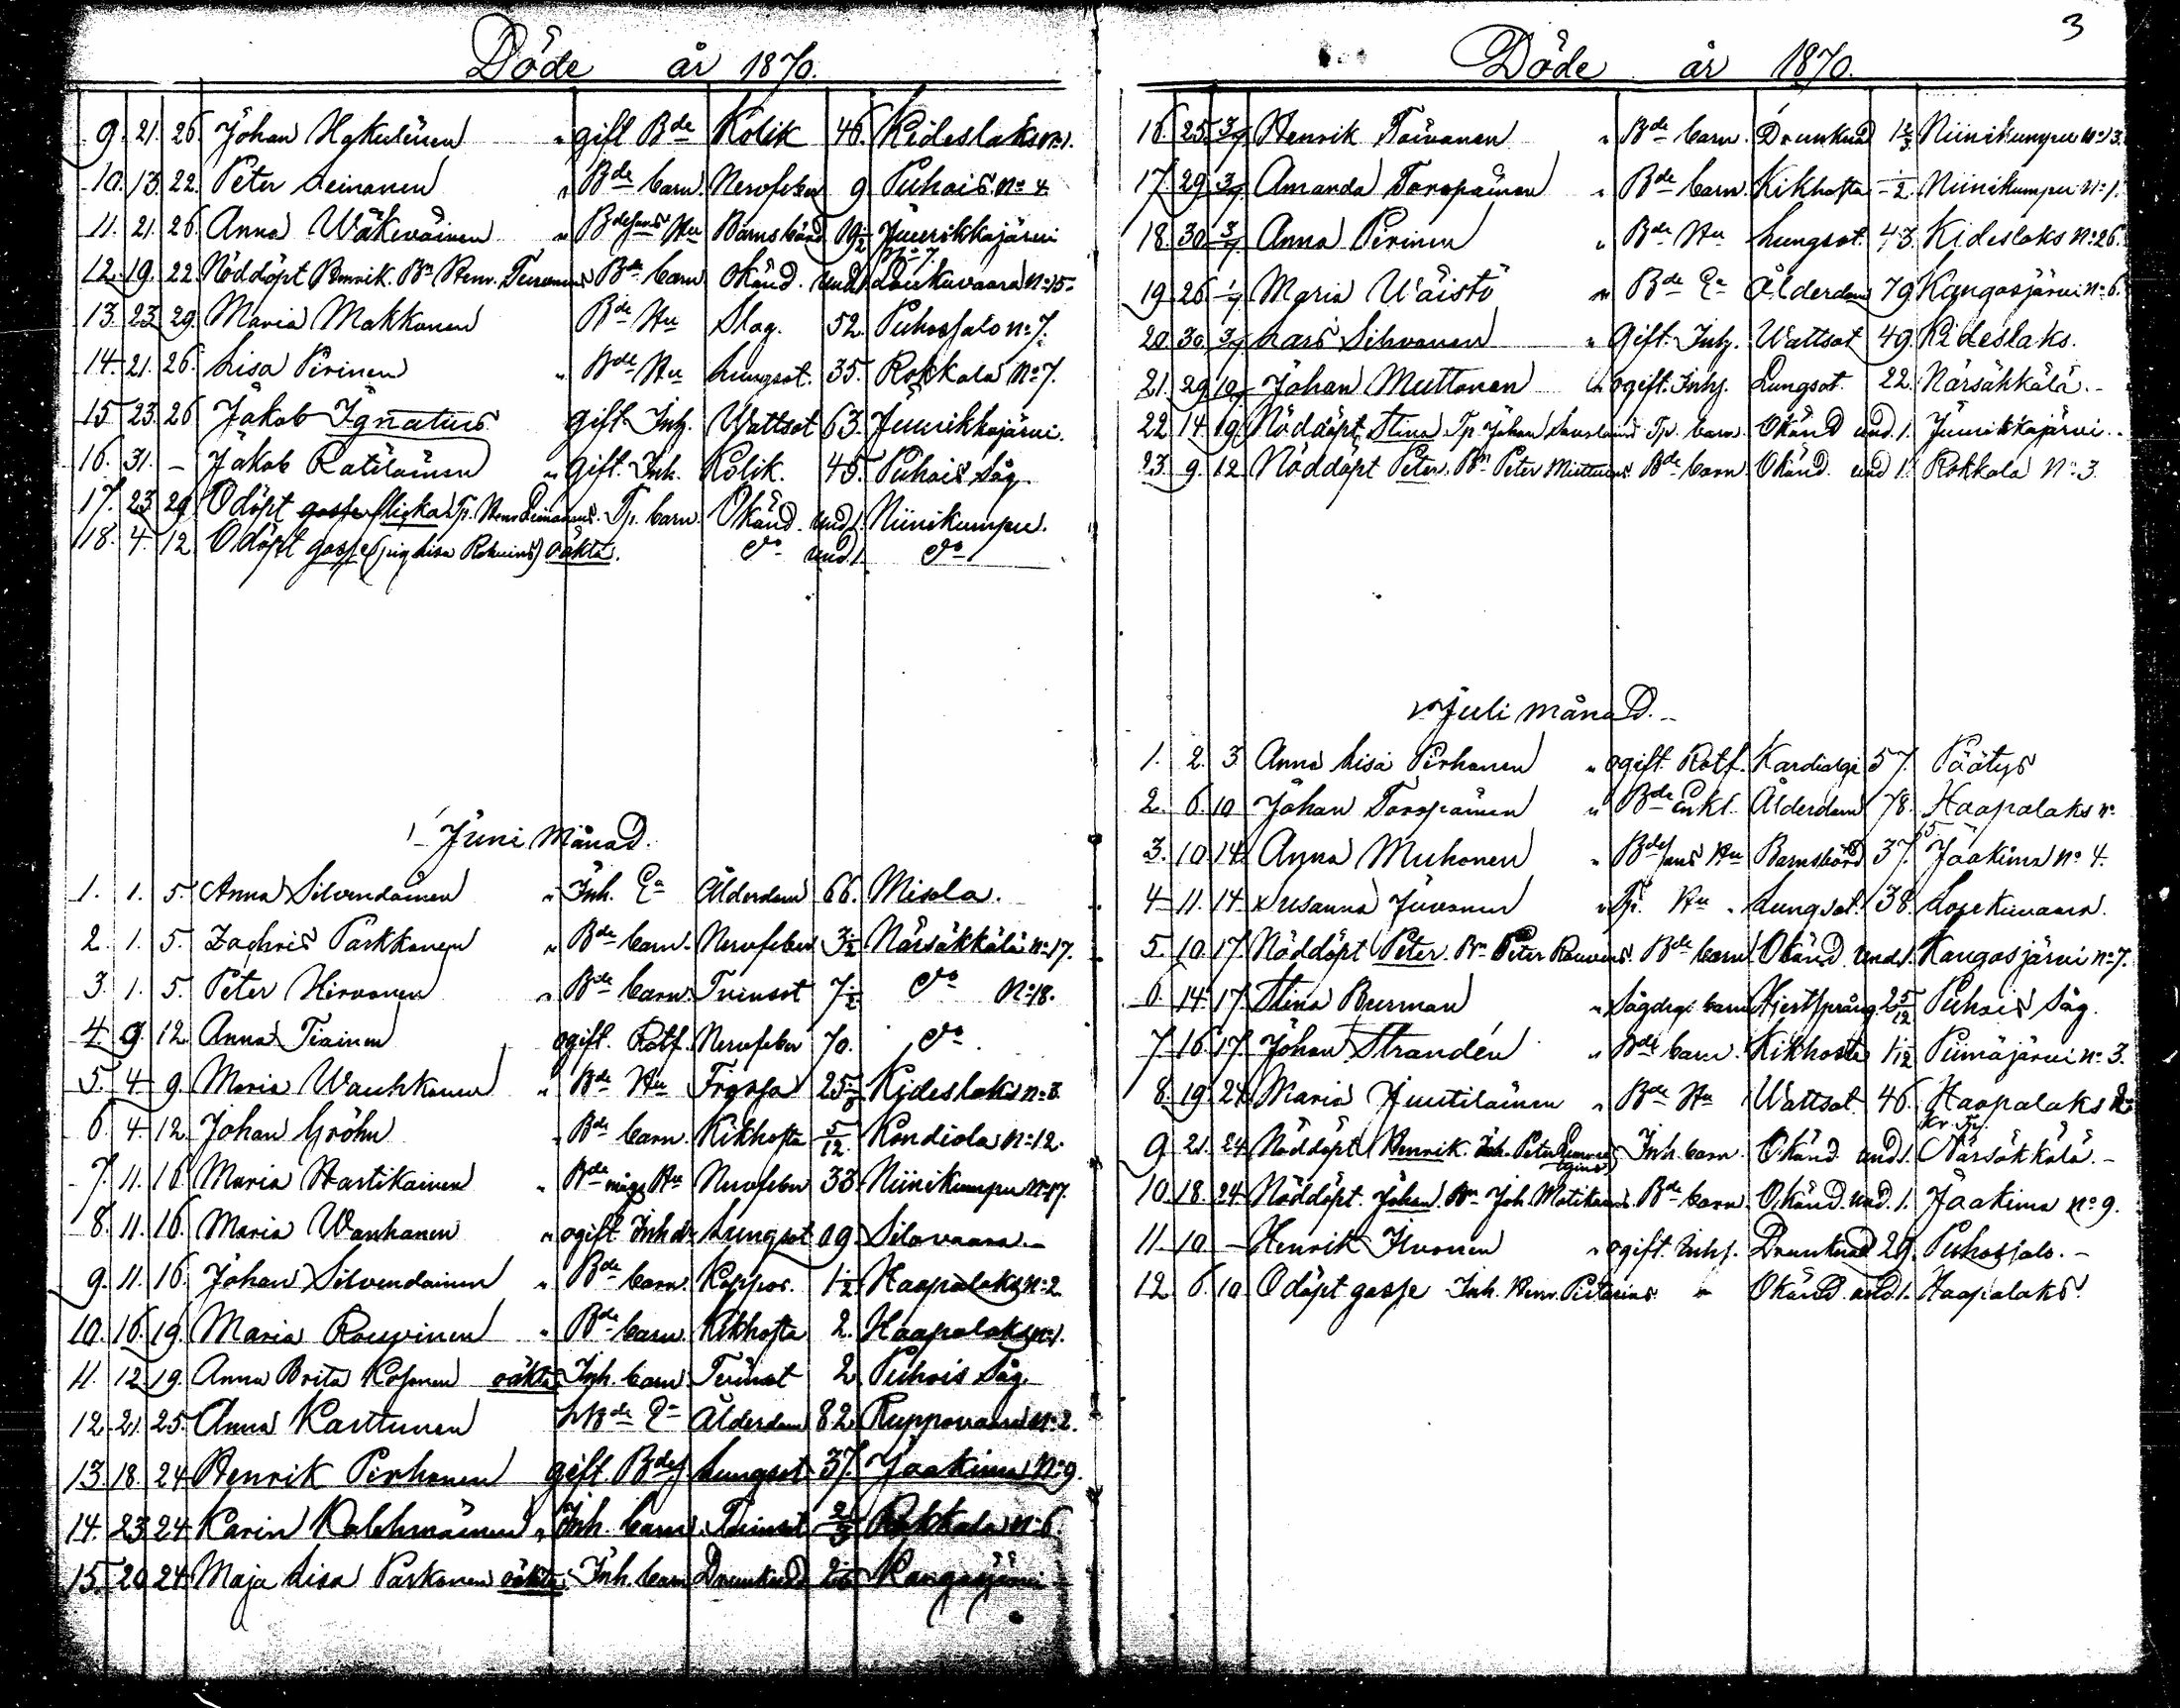 Döde år 1870.
9. 21. 26. Johan Hakulinen " gift Bde Kolik 46. Kideslaks No 1.
10. 13. 22. Peter Leinonen " Bde barn. Nervfeber 9 Puhois No 4
11. 21. 26. Anna Wäkeväinen " Bdesons Hu Barnsbörd 19 1/2 Juurikkajärvi No 7.
12. 19. 22. Nöddöpt Henrik. Bn Henr. Bde barn Okänd. und. 1 Loukuvaara No 15
13. 23. 29. Maria Makkonen Bde Hu Slag. 52. Puhossalo No 7.
14. 21. 26. Lisa Pirinen " Bde Hu Lungsot. 35. Rokkala No 7.
15 23. 26 Jakob Ignatius gift Inh. Wattsot 63. Juurikkajärvi.
16. 31. - Jakob Ratilainen " gift. Inh. Kolik. 45. Puhois Såg.
17. 23 29 Odöpt gosse flicka Tp. Henr Leinonens. Tp. barn. Okänd. und 1. Niinikumpu.
18. 4. 12 Odöpt gosse (pig Lisa) oäkta. do und. 1. do
Juni Månad.
1. 1. 5. Anna Silvendoinen " Inh. Ea Ålderdom 66. Misola.
2. 1. 5. Zachris Parkkonen " Bde barn. Nervfeber 3 1/2 Närsäkkälä No 17.
3. 1. 5. Peter Hirvonen " Bde barn. Tvinsot 7 1/2 do No 18.
4. 9. 12 Anna Tiainen ogift. Rotf. Nervfeber 70. do
5. 4 9. Maria Wauhkonen " Bde Hu Frossa 25 Kideslaks No 3.
6. 4. 12. Johan Gröhn " Bde barn. Kikhosta 5/12. Kondiola No 12.
7. 11. 16 Maria Hartikainen " Bde mågs Hu Nervfeber 33. Niinikumpu No 17.
8. 11. 16. Maria Wanhanen " ogift Inh dr Lungsot 19. Silovaara.
9. 11. 16. Johan Silvendoinen " Bde barn. Koppor. 1 1/2 Haapalaks No 2
10. 16. 19. Maria Roupinen " Bde barn. Kikhosta 2. Haapalaks No 1.
11. 12 19. Anna Brita Kosonen oäkta Inh. barn Tvinsot 2. Puhois Såg
12. 21. 25. Anna Karttunen Bde Ea Ålderdom 82. Ruppovaara No 2.
13. 18. 24 Henrik Pirhonen gift. Bdes Lungsot 37. Jaakima No 9.
14. 23 24 Karin Kolehmainen " Inh. barn. Tvinsot 2/3 Rokkala No 6.
15. 20 24 Maja Lisa Parkonen oäkta Inh. barn Drunknad Kangasjärvi
3
Döde år 1870.
16. 25. 3/7 Henrik Toivanen " Bde barn. Drunknad 1 2/3 Niinikumpu No 13.
17 29 3/7 Amanda Torspäinen " Bde barn. Kikhosta 1/2 Niinikumpu No 1.
18. 30 3/7 Anna Pirinen " Bde Hu Lungsot. 43. Kideslaks No 26.
19 26 1/7 Maria Wäistö " Bde Ea Ålderdom 79 Kangasjärvi No 6.
20 30 3/7 Lars Sihvonen " Gift. Inh. Wattsot 49. Kideslaks.
21. 29 10/7 Johan Muttonen ogift. Inhs. Lungsot. 22. Närsäkkälä.
22 14 19 Nöddöpt Stina Tp. Johan Tp. barn Okänd und. 1. Juurikkajärvi.
23. 9. 12 Nöddöpt Peter. Bn Peter Bde barn Okänd. und 1. Rokkala No 3.
Juli Månad.
1. 2. 3 Anna Lisa Pirhonen " ogift. Rotf. Kardialgi 57. Päätys
2. 6. 10 Johan Torspäinen " Bde Enkl. Ålderdom 78. Haapalaks No 15.
3. 10. 14 Anna Muhonen " Bdesons Hu Barnsbörd 37. Jaakima No 4.
4 11. 14 Susanna Juvonen " Tp. Hu Lungsot. 38. Lopekuvaara.
5. 10. 17. Nöddöpt Peter. Bn Peter Bde barn Okänd. und. 1. Kangasjärvi No 7.
6. 14 17. Stina Burman " Sågdrgi barn Hjertsprång. 2 5/12 Puhois Såg.
7 16 17. Johan Strandén " Bde barn. Kikhosta 1/12 Piimäjärvi No 3.
8. 19 24. Maria Juutilainen " Bde Hu Wattsot. 46. Haapalaks No
9 21. 24 Nöddöpt Henrik. Inh. Peter Inh. barn. Okänd und 1. Närsäkkälä.
10. 18. 24. Nöddöpt. Johan. Bn Joh. Matikainens. Bde barn. Okänd. und. 1. Jaakima No 9.
11. 10. - Henrik Ihvonen " ogift. Inhs. Drunknad 29. Puhossalo.
12 6. 10 Odöpt gosse Inh. Henr. Pietarins " Okänd und 1. Haapalaks.